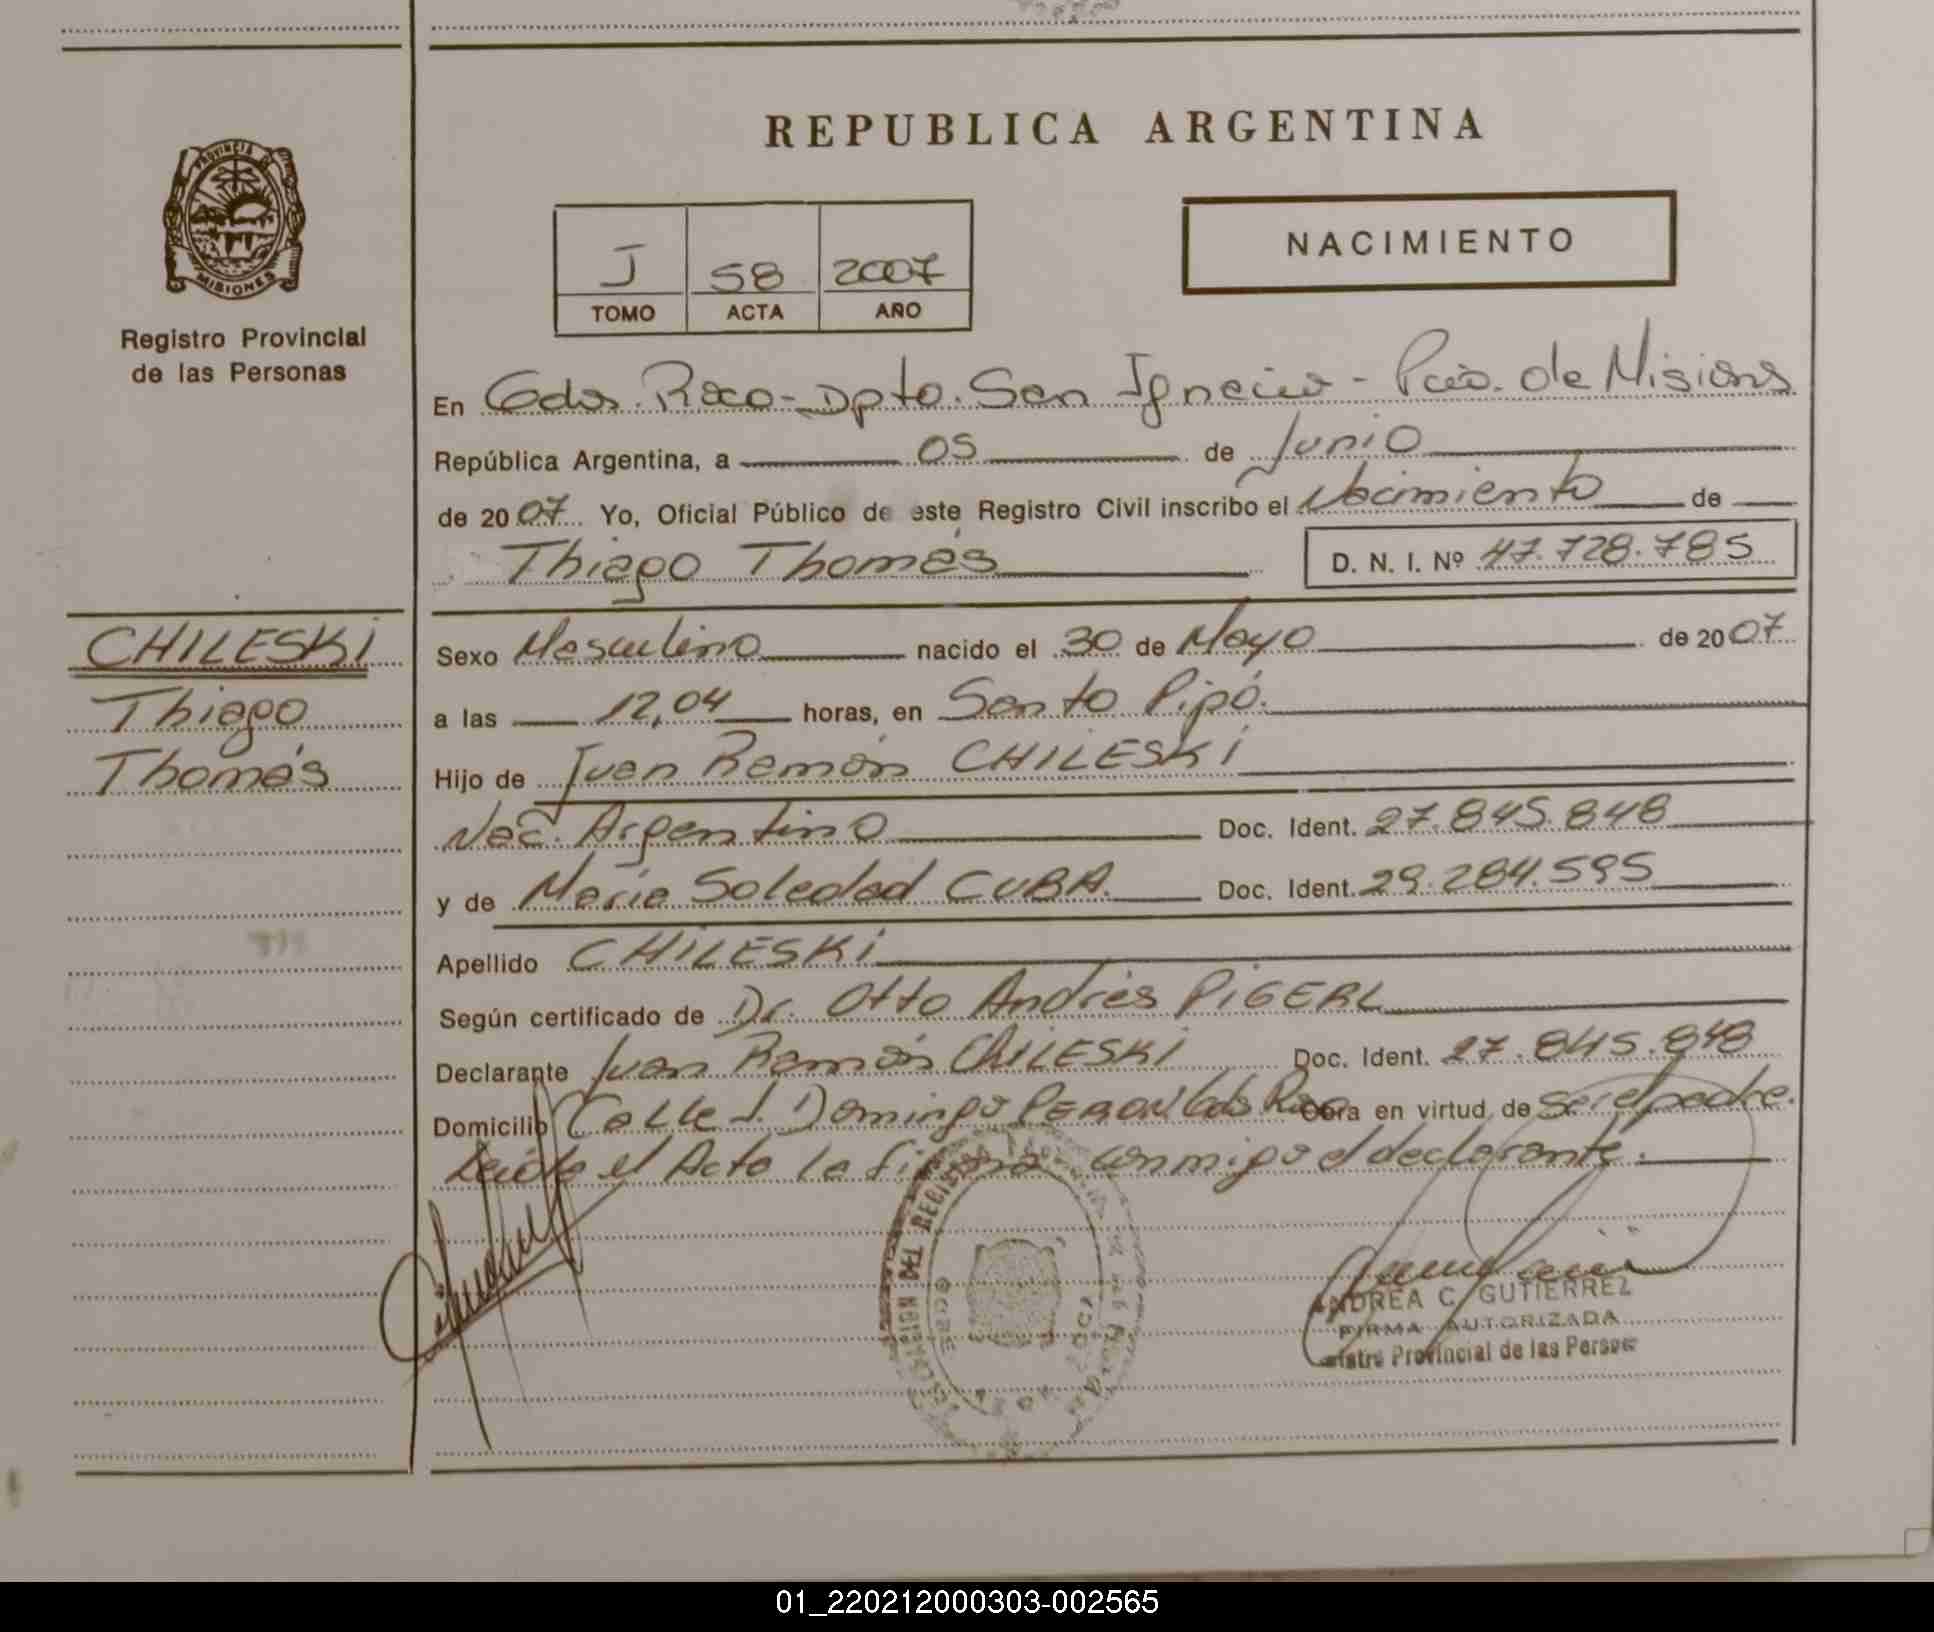 PROVINCIA DE
MISIONES
Registro Provincial
de las Personas
REPUBLICA ARGENTINA
J 58 2007
TOMO ACTA AÑO
NACIMIENTO
En Gdor. Roca - Dpto. San Ignacio - Pcia. de Misiones
República Argentina, a 05 de Junio
de 2007 Yo, Oficial Público de este Registro Civil inscribo el Nacimiento de
Thiago Thomás D. N. I. Nº 47.728.785
CHILESKI
Thiago
Thomás
Sexo Masculino nacido el 30 de Mayo de 2007
a las 12,04 horas, en Santo Pipó.
Hijo de Juan Ramón CHILESKI
Nac. Argentino Doc. Ident. 27.845.848
y de María Soledad CUBA. Doc. Ident. 29.284.595
Apellido CHILESKI
Según certificado de Dr. Otto Andrés PIGERL
Declarante Juan Ramón CHILESKI Doc. Ident. 27.845.848
Domicilio Calle J. Domingo PERON Gdor Roca Obra en virtud de ser el padre.
Leída el Acta la firma conmigo el declarante.
DEL REGISTRO
ANDREA C. GUTIERREZ
FIRMA AUTORIZADA
Provincial de las Person
01_220212000303-002565